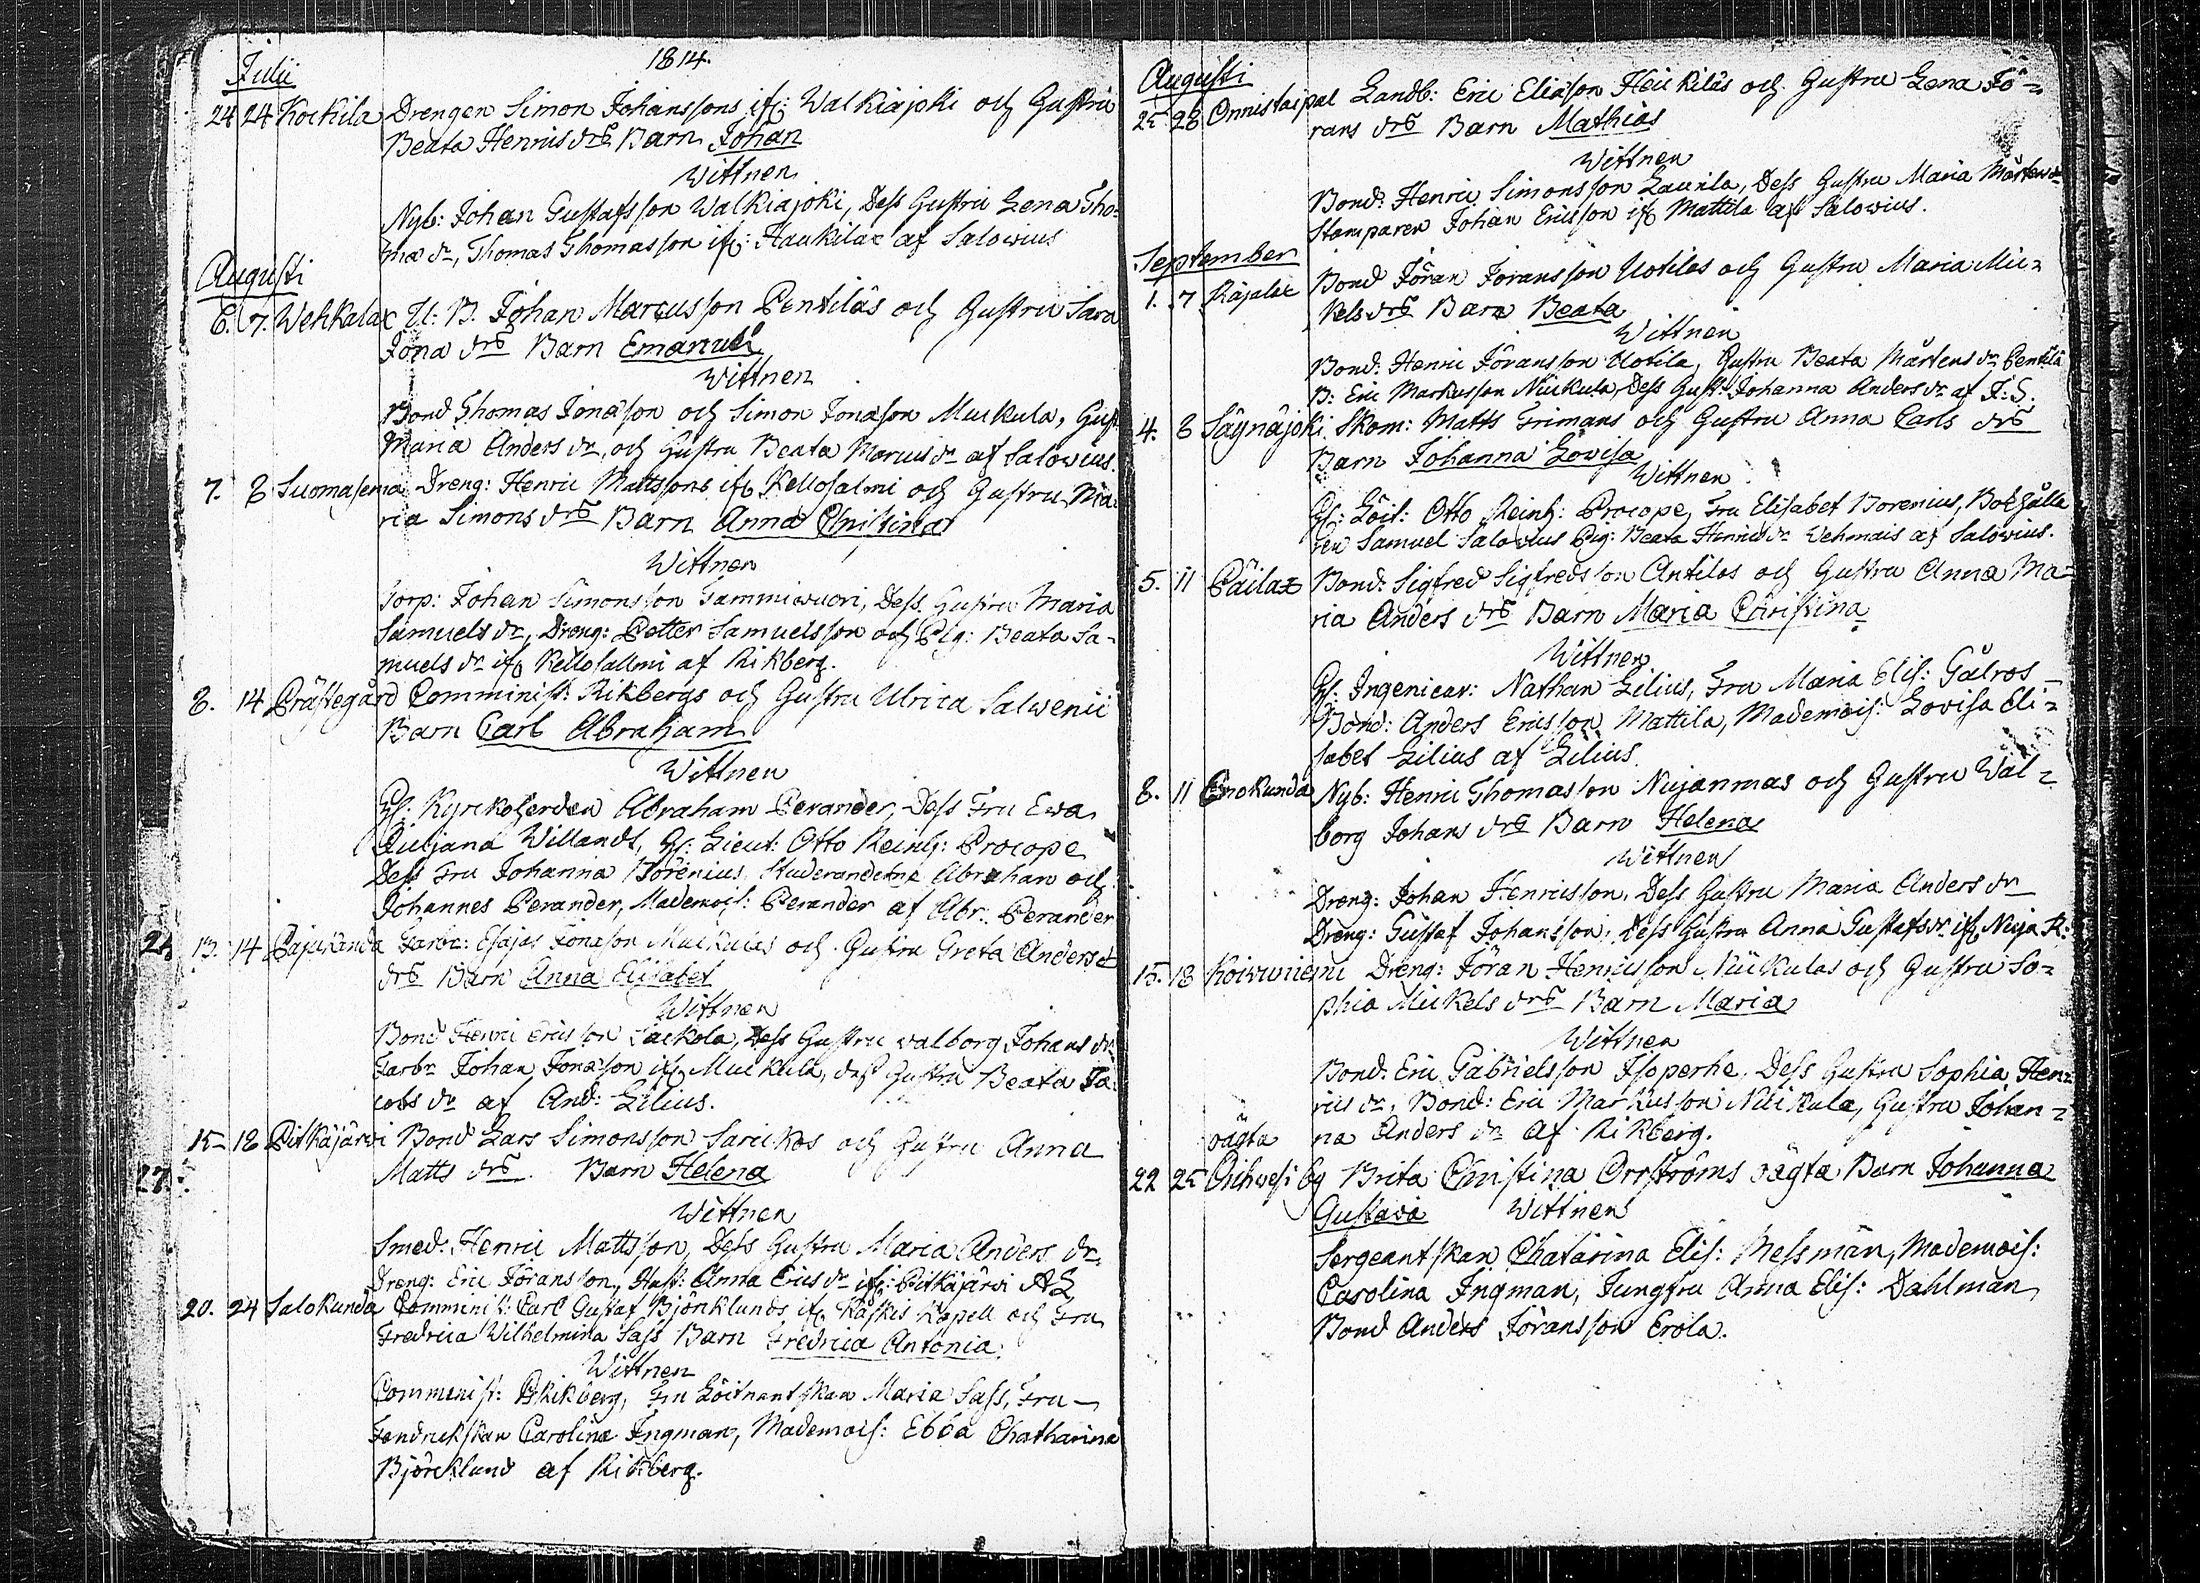 1814.
Julii
24 24 Kockila Drengen Simon Johanssons ifr: Walkiajoki och Hustru
Beata Henricsdrs Barn Johan
Wittnen
Nyb: Johan Gustafsson Walkiajoki, Dess Hustru Lena Tho-
mæ dr, Thomas Thomasson ifr: Haukilax af Salovius
Augusti
6. 7. Wehkalax U: B. Johan Marcusson Pentiläs och Hustru Sara
Jona drs Barn Emanuel
Wittnen
Bond Thomas Jonasson och Simon Jonasson Muckula, Hust
Maria Anders dr, och Hustru Beata Marcus dr af Salovius.
7. 8 Suomasema Dreng: Henric Mattssons ifr Kellosalmi och Hustru Ma-
ria Simons drs Barn Anna Christina
Wittnen
Torp: Johan Simonsson Tammiwuori, Dess Hustru Maria
Samuels dr, Dreng: Petter Samuelsson och Pig: Beata Sa-
muels dr ifr Kellosallmi af Rikberg.
8. 14 Prästegård Comminist: Rikbergs och Hustru Ulrica Salwenii
Barn Carl Abraham
Wittnen
Hr: Kyrkoherden Abraham Perander, Dess Fru Ewa
Juliana Willandt, Hr: Lieut: Otto Reinh: Procope
Dess Fru Johanna Borenius, Studeranderne Abraham och
Johannes Perander, Mademois: Perander af Abr. Perander
13. 14 Pajukanda Farbr: Esajas Jonasson Muckulas och Hustru Greta Anders
drs Barn Anna Elisabet
Wittnen
Bond Henric Ericsson Lackola, Dess Hustru Valborg Johans dr
Farbr Johan Jonasson ifr Muckula, dess Hustru Beata Ja-
cobs dr af And: Lilius.
15 18 Pitkäjärvi Bond Lars Simonsson Sarickos och Hustru Anna
Matts drs Barn Helena
Wittnen
Smed: Henric Mattsson, Dess Hustru Maria Anders dr,
Dreng: Eric Göransson, Hust: Anna Erics dr ifr: Pitkäjärvi AL
20. 24 Salokunda Comminist: Carl Gustaf Björklunds ifr Kaskis Kapell och Fru
Fredrica Wilhelmina Sass Barn Fredrica Antonia.
Wittnen
Comminist: Rikberg, Fru Löitnantskan Maria Sass, Fru
Fendrickskan Carolina Ingman, Mademois: Ebba Chatharina
Björcklund af Rikberg.
Augusti
25 28 Onnistaipal Landb: Eric Eliasson Heickiläs och Hustru Lena Jö-
rans drs Barn Mathias
Wittnen
Bond: Henric Simonsson Laurila, Dess Hustru Maria Mårtens dr
Stamparen Johan Ericsson ifr Mattila af Salovius.
September
1. 7 Rajalax Bond Jöran Joransson Uotilas och Hustru Maria Mic-
kels drs Barn Beata
Wittnen
Bond: Henric Jöransson Uotila, Hustru Beata Mårtens dr Pentilä
B: Eric Markusson Nickula, Dess Hust: Johanna Anders dr af J: S.
4. 8 Säynäjoki Skom: Matts Frimans och Hustru Anna Carls drs
Barn Johanna Lovisa
Wittnen
Hr: Löit: Otto Reinh: Procope, Fru Elisabet Borenius, Bokhålla
ren Samuel Salovius Pig: Beata Henrics dr Wehmais af Salovius.
5. 11 Päilax Bond: Sigfred Sigfredsson Antilas och Hustru Anna Ma-
ria Anders drs Barn Maria Christina
Wittnen
Hr: Ingenieur: Nathan Lilius, Fru Maria Elis: Galros
Bond: Anders Ericsson Mattila, Mademois: Lovisa Eli-
sabet Lilius af Lilius
8. 11 Enokunda Nyb: Henric Thomasson Nujanmas och Hustru Wal-
borg Johans drs Barn Helena
Wittnen
Dreng: Johan Henricsson, Dess Hustru Maria Anders dr
Dreng: Gustaf Johansson, Dess Hustru Anna Gustafs dr ifr Nuja R:
15. 18 Koivuniemi Dreng: Jöran Henricsson Nickulas och Hustru So-
phia Mickels drs Barn Maria
Wittnen
Bond: Eric Gabrielsson Isoperhe, Dess Hustru Sophia Hen-
rics dr, Bond: Eric Markusson Nickula, Hustru Johan-
na Anders dr af Rikberg.
oägta
22 25 Orihvesi by Brita Christina Orrströms oägta Barn Johanna
Gustava Wittnen
Sergeantskan Chatarina Elis: Messman, Mademois:
Carolina Ingman, Jungfru Anna Elis: Dahlman,
Bond Anders Jöransson Erola.